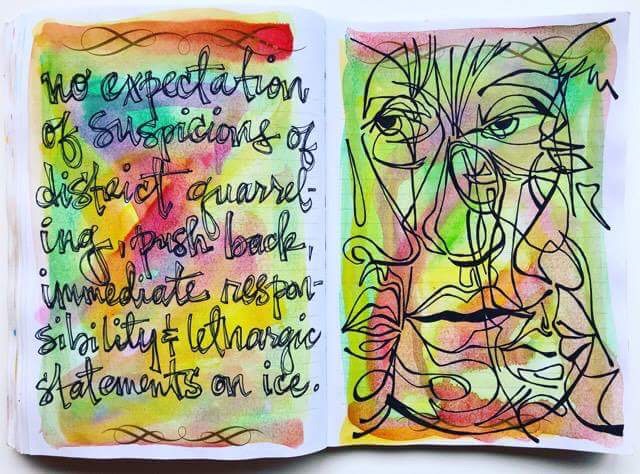 no expectation
of suspicions of
district quarrel-
ing, push back,
immediate respon-
sibility & lethargic
statements on ice.